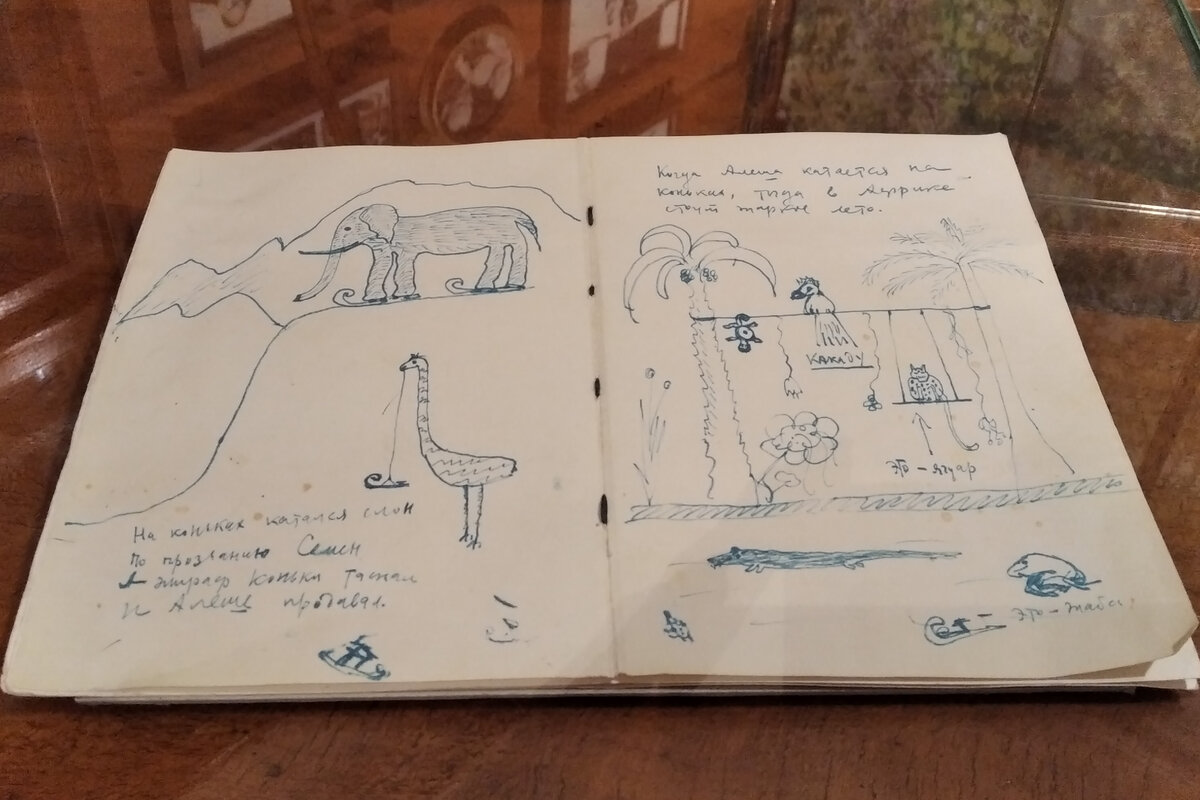 На коньках катался слон
По прозванию Семен
А жираф коньки таскал
И Алеше продавал.
Когда Алеша катается на
коньках, тогда в Африке
стоит жаркое лето.
КАКАДУ
это - ягуар
это - жабы